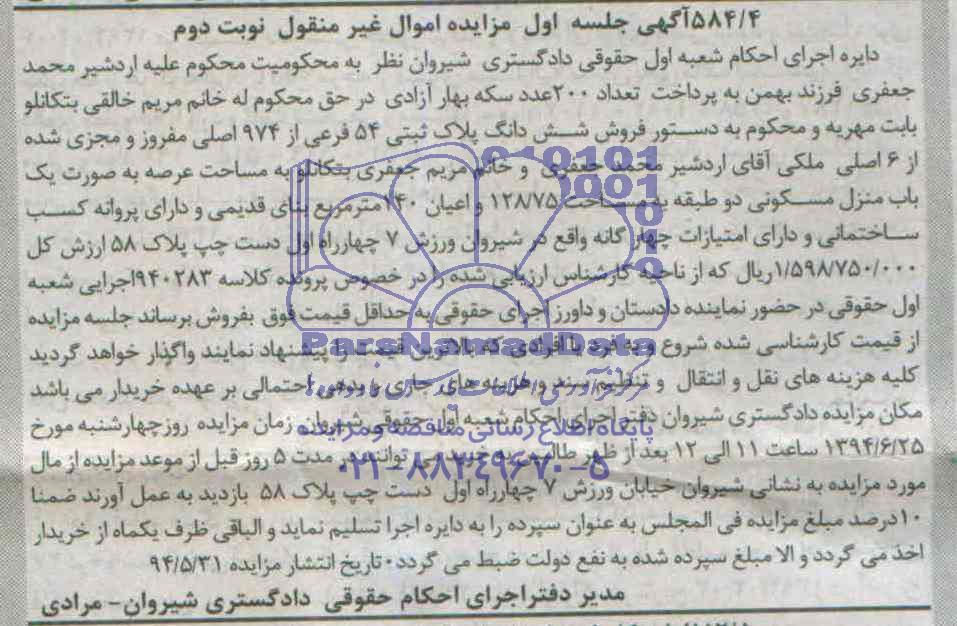 ۵۸۴/۴آگهی جلسه اول مزایده اموال غیر منقول نوبت دوم
دایره اجرای احکام شعبه اول حقوقی دادگستری شیروان نظر به محکومیت محکوم علیه اردشیر محمد
جعفری فرزند بهمن به پرداخت تعداد ۲۰۰عدد سکه بهار آزادی در حق محکوم له خانم مریم خالقی بتکانلو
بابت مهریه و محکوم به دستور فروش شش دانگ پلاک ثبتی ۵۴ فرعی از ۹۷۴ اصلی مفروز و مجزی شده
از ۶ اصلی ملکی آقای اردشیر محمد جعفری و خانم مریم جعفری بتکانلو به مساحت عرصه به صورت یک
باب منزل مسکونی دو طبقه به مساحت ۱۲۸/۷۵ و اعیان ۱۴۰مترمربع بنای قدیمی و دارای پروانه کسب
ساختمانی و دارای امتیازات چهار گانه واقع در شیروان ورزش ۷ چهارراه اول دست چپ پلاک ۵۸ ارزش کل
۱/۵۹۸/۷۵۰/۰۰۰ریال که از ناحیه کارشناس ارزیابی شده را در خصوص پرونده کلاسه ۹۴۰۲۸۳اجرایی شعبه
اول حقوقی در حضور نماینده دادستان و داورز اجرای حقوقی به حداقل قیمت فوق بفروش برساند جلسه مزایده
از قیمت کارشناسی شده شروع و به فرد یا افرادی که بالاترین قیمت را پیشنهاد نمایند واگذار خواهد گردید
کلیه هزینه های نقل و انتقال و تنظیم سند و هزینه های جاری و بدهی احتمالی بر عهده خریدار می باشد
مکان مزایده دادگستری شیروان دفتر اجرای احکام شعبه اول حقوقی شیروان زمان مزایده روزچهارشنبه مورخ
۱۳۹۴/۶/۲۵ ساعت ۱۱ الی ۱۲ بعد از ظهر طالبین به خرید می توانند در مدت ۵ روز قبل از موعد مزایده از مال
مورد مزایده به نشانی شیروان خیابان ورزش ۷ چهارراه اول دست چپ پلاک ۵۸ بازدید به عمل آورند ضمنا
۱۰درصد مبلغ مزایده فی المجلس به عنوان سپرده را به دایره اجرا تسلیم نماید و الباقی ظرف یکماه از خریدار
اخذ می گردد و الا مبلغ سپرده شده به نفع دولت ضبط می گردد۰تاریخ انتشار مزایده ۹۴/۵/۳۱
مدیر دفتراجرای احکام حقوقی دادگستری شیروان- مرادی
ParsNamadData
پایگاه اطلاع رسانی مناقصه و مزایده
۰۲۱-۸۸۳۴۹۶۷۰-۵